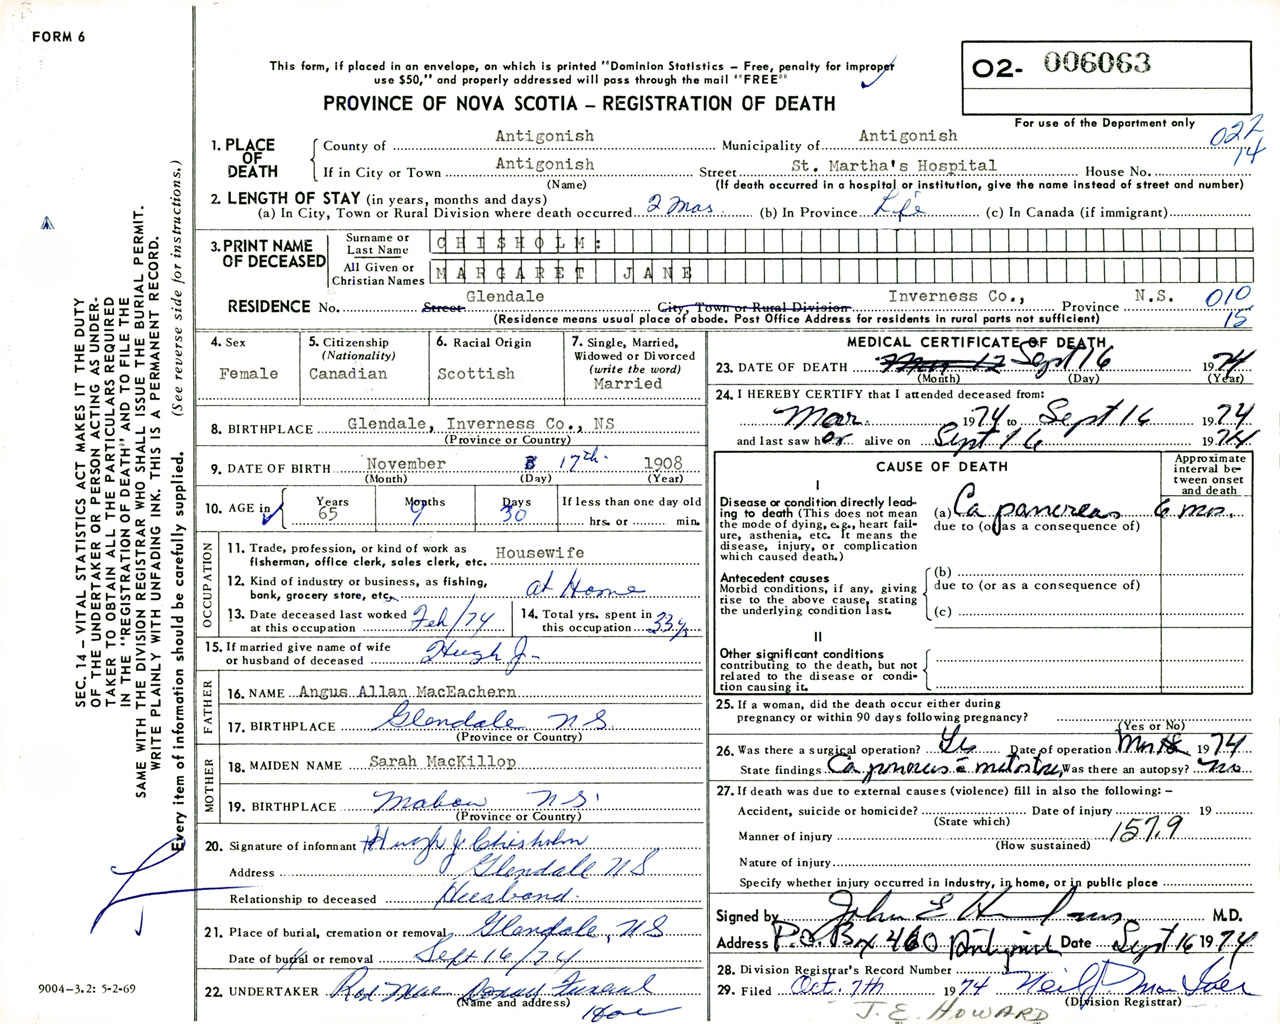 FORM 6
This form, if placed in an envelope, on which is printed "Dominion Statistics – Free, penalty for improper
use $50," and properly addressed will pass through the mail "FREE"
PROVINCE OF NOVA SCOTIA – REGISTRATION OF DEATH
O2- 006063
For use of the Department only
022
14
1. PLACE OF DEATH
County of Antigonish Municipality of Antigonish
If in City or Town Antigonish Street St. Martha's Hospital House No.
(Name) (If death occurred in a hospital or institution, give the name instead of street and number)
2. LENGTH OF STAY (in years, months and days)
(a) In City, Town or Rural Division where death occurred 2 mos. (b) In Province Life (c) In Canada (if immigrant)
3. PRINT NAME OF DECEASED
Surname or Last Name CHISHOLM:
All Given or Christian Names MARGARET JANE
RESIDENCE No. Street Glendale City, Town or Rural Division Inverness Co., Province N.S. 010
15
(Residence means usual place of abode. Post Office Address for residents in rural parts not sufficient)
4. Sex
Female
5. Citizenship
(Nationality)
Canadian
6. Racial Origin
Scottish
7. Single, Married,
Widowed or Divorced
(write the word)
Married
8. BIRTHPLACE Glendale, Inverness Co., NS
(Province or Country)
9. DATE OF BIRTH November 17th 1908
(Month) (Day) (Year)
10. AGE in Years 65 Months 9 Days 30
If less than one day old
hrs. or min.
OCCUPATION
11. Trade, profession, or kind of work as
fisherman, office clerk, sales clerk, etc. Housewife
12. Kind of industry or business, as fishing,
bank, grocery store, etc. at Home
13. Date deceased last worked
at this occupation Feb/74
14. Total yrs. spent in
this occupation 33 yrs
15. If married give name of wife
or husband of deceased Hugh J.
FATHER
16. NAME Angus Allan MacEachern
17. BIRTHPLACE Glendale N S.
(Province or Country)
MOTHER
18. MAIDEN NAME Sarah MacKillop
19. BIRTHPLACE Mabou N S.
(Province or Country)
20. Signature of informant Hugh J Chisholm
Address Glendale N S
Relationship to deceased Husband.
21. Place of burial, cremation or removal Glendale, N S
Date of burial or removal Sept 16/74
22. UNDERTAKER Rod Mac Funeral
(Name and address)
MEDICAL CERTIFICATE OF DEATH
23. DATE OF DEATH Sept 16 1974
(Month) (Day) (Year)
24. I HEREBY CERTIFY that I attended deceased from:
Mar. 1974 to Sept 16 1974
and last saw her alive on Sept 16 1974
CAUSE OF DEATH
Approximate
interval be-
tween onset
and death
I
Disease or condition directly lead-
ing to death (This does not mean
the mode of dying, e.g., heart fail-
ure, asthenia, etc. It means the
disease, injury, or complication
which caused death.)
(a) Ca pancreas 6 mos.
due to (or as a consequence of)
Antecedent causes
Morbid conditions, if any, giving
rise to the above cause, stating
the underlying condition last.
(b)
due to (or as a consequence of)
(c)
II
Other significant conditions
contributing to the death, but not
related to the disease or condi-
tion causing it.
25. If a woman, did the death occur either during
pregnancy or within 90 days following pregnancy?
(Yes or No)
26. Was there a surgical operation? Yes Date of operation 1974
State findings Ca pancreas Was there an autopsy? no
27. If death was due to external causes (violence) fill in also the following: –
Accident, suicide or homicide? Date of injury 19
(State which)
Manner of injury 157.9
(How sustained)
Nature of injury
Specify whether injury occurred in industry, in home, or in public place
Signed by John E M.D.
Address P.O. Box 460 Antigonish Date Sept 16 1974
28. Division Registrar's Record Number
29. Filed Oct. 7th 1974 Neil J.
(Division Registrar)
J. E. HOWARD
SEC. 14 – VITAL STATISTICS ACT MAKES IT THE DUTY
OF THE UNDERTAKER OR PERSON ACTING AS UNDER-
TAKER TO OBTAIN ALL THE PARTICULARS REQUIRED
IN THE "REGISTRATION OF DEATH" AND TO FILE THE
SAME WITH THE DIVISION REGISTRAR WHO SHALL ISSUE THE BURIAL PERMIT.
WRITE PLAINLY WITH UNFADING INK. THIS IS A PERMANENT RECORD.
Every item of information should be carefully supplied. (See reverse side for instructions.)
9004–3.2: 5-2-69